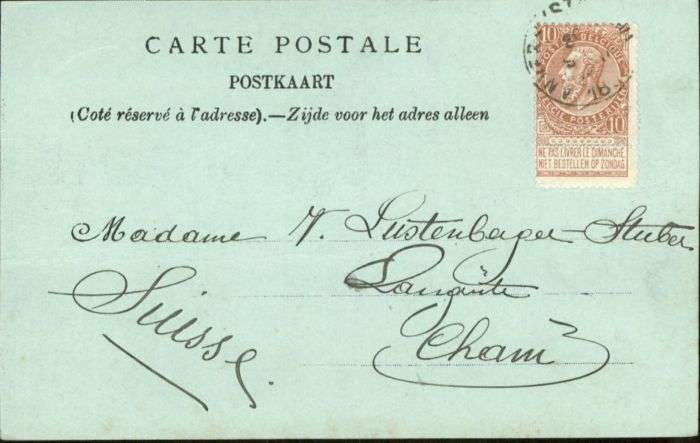 CARTE POSTALE
POSTKAART
(Coté réservé à l'adresse).—Zijde voor het adres alleen
10
10
NE PAS LIVRER LE DIMANCHE
NIET BESTELLEN OP ZONDAG
Madame V. Lustenbager-Stuber
Langrüte
Cham
Suisse.